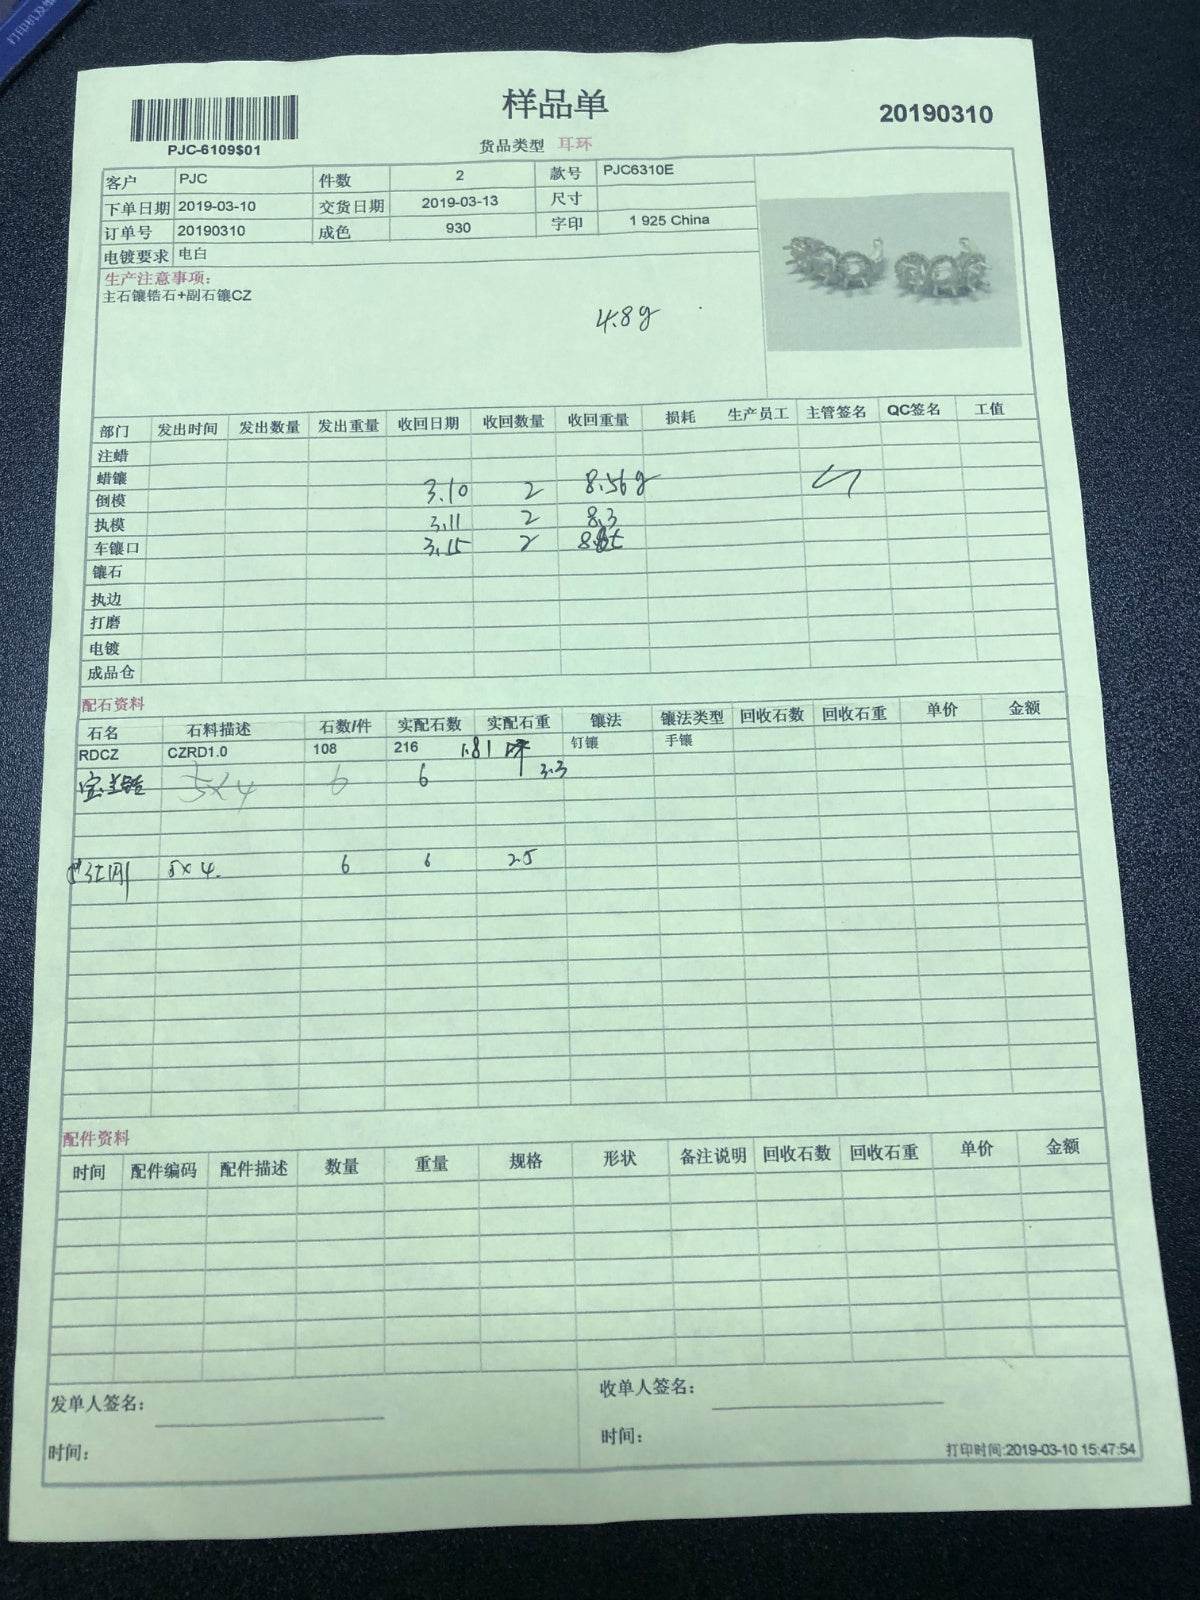 样品单
20190310
PJC-6109$01
货品类型 耳环
客户 PJC 件数 2 款号 PJC6310E
下单日期 2019-03-10 交货日期 2019-03-13 尺寸
订单号 20190310 成色 930 字印 1 925 China
电镀要求 电白
生产注意事项:
主石镶锆石+副石镶CZ
4.8g
部门 发出时间 发出数量 发出重量 收回日期 收回数量 收回重量 损耗 生产员工 主管签名 QC签名 工值
注蜡
蜡镶
倒模 3.10 2 8.56g
执模 3.11 2 8.3
车镶口 3.15 2
镶石
执边
打磨
电镀
成品仓
配石资料
石名 石料描述 石数/件 实配石数 实配石重 镶法 镶法类型 回收石数 回收石重 单价 金额
RDCZ CZRD1.0 108 216 1.81 钉镶 手镶
5×4 6 6 3.3
5×4. 6 6 2.5
配件资料
时间 配件编码 配件描述 数量 重量 规格 形状 备注说明 回收石数 回收石重 单价 金额
发单人签名: 收单人签名:
时间: 时间:
打印时间:2019-03-10 15:47:54